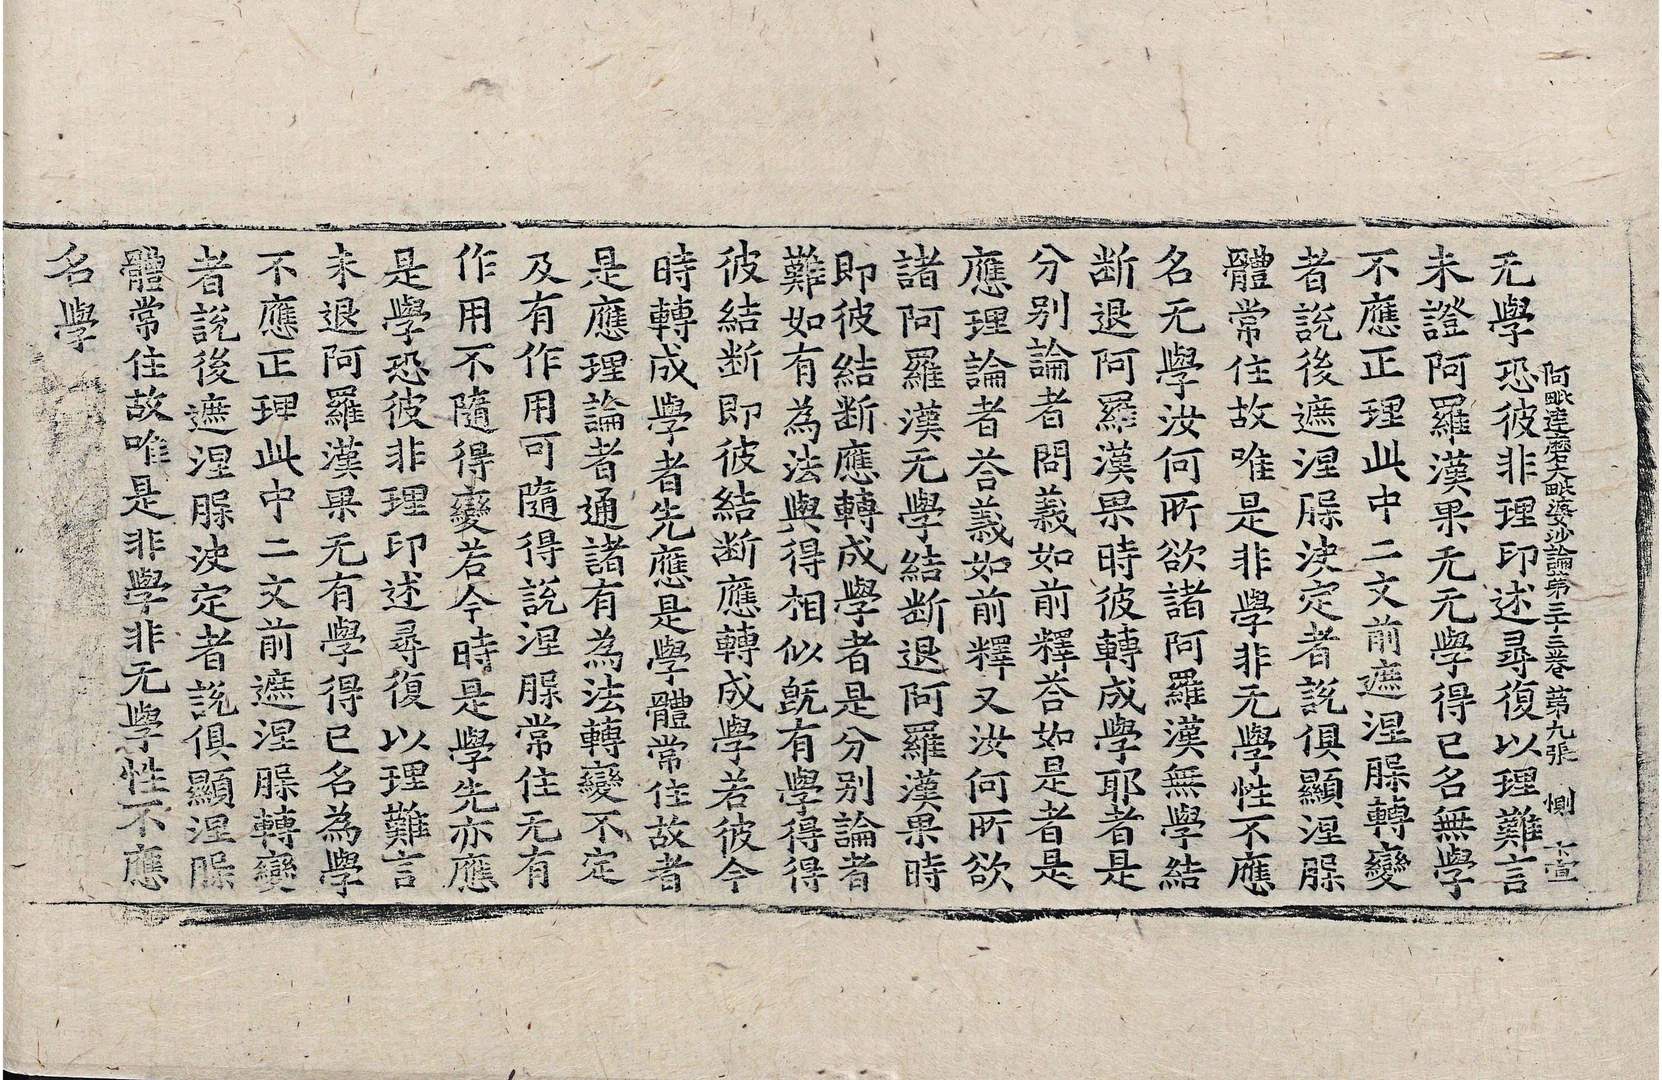 阿毗達磨大毗婆沙論第三十三卷 第九張 惻
无學恐彼非理印述尋復以理難言
未證阿羅漢果无无學得已名無學
不應正理此中二文前遮涅槃轉變
者說後遮涅槃決定者說俱顯涅槃
體常住故唯是非學非无學性不應
名无學汝何所欲諸阿羅漢無學結
断退阿羅漢果時彼轉成學耶者是
分别論者問義如前釋荅如是者是
應理論者荅義如前釋又汝何所欲
諸阿羅漢无學結断退阿羅漢果時
即彼結断應轉成學者是分别論者
難如有為法與得相似旣有學得得
彼結断即彼結断應轉成學若彼今
時轉成學者先應是學體常住故者
是應理論者通諸有為法轉變不定
及有作用可隨得說涅槃常住无有
作用不隨得變若今時是學先亦應
是學恐彼非理印述尋復以理難言
未退阿羅漢果无有學得已名為學
不應正理此中二文前遮涅槃轉變
者說後遮涅槃決定者說俱顯涅槃
體常住故唯是非學非无學性不應
名學